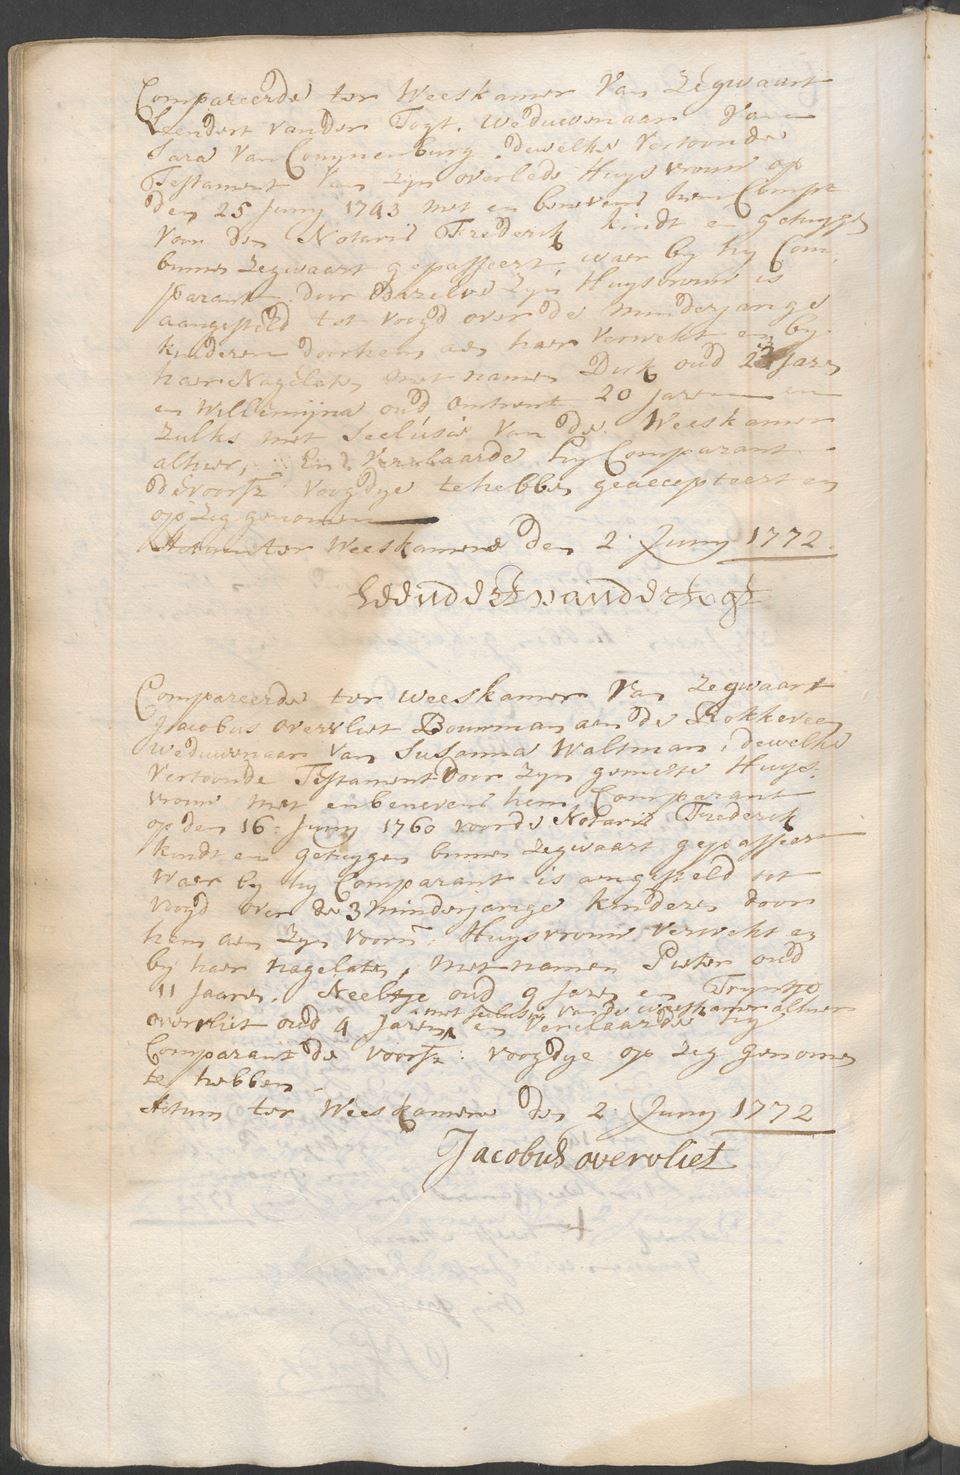 Compareerde ter Weeskamer Van Zegwaart
Leendert vander Togt. Weduwenaar Van
Sara Van Couwenburg. dewelke Vertoonde
Testament Van zijn overlede Huysvrouw op
den 25 Juny 1743 met en benevens hem Compt
voor den Notaris Frederik kindt en getuyge
binnen Zegwaart gepasseert waer by hy Com,
parant door dezelve zijn Huysvrouw is
aangesteld tot voogd over de minderjarige
kinderen door hem aen haer Verwekt en by
haer Nagelaten met namen Dirk oud 23 Jaren
en Willemijna oud omtrent 20 Jaren en
zulks met Seclusie van de Weeskamer
alhier, En Verklaarde hy Comparant
de voorsz: voogdye te hebben geaccepteert en
op zig genomen
Actum ter Weeskamere den 2 Juny 1772.
Leendert vander togt
Compareerde ter Weeskamer Van Zegwaart
Jacobus overvliet Bouwman aen de Rokkeveen
weduwenaer van Susanna Waltman, dewelke
Vertoonde Testament door zijn gemelte Huys
vrouw met en benevens hem Comparant
op den 16: Juny 1760 voor de Notaris Frederik
kindt en getuygen binnen Zegwaart gepasseert
waer by hy Comparant is aengesteld tot
voogd over de 3 minderjarige kinderen door
hem aen zijn voorn: Huysvrouw Verwekt en
by haer nagelaten, met namen Pieter oud
11 Jaaren, Neeltje oud 9 Jaren en Tryntje
met seclusie van de weeskamer alhier
overvliet oud 4 Jaren, en Verclaarde hy
Comparant de voorsz: voogdye op zig genomen
te hebben
Actum ter Weeskamere den 2 Juny 1772
Jacobus overvliet